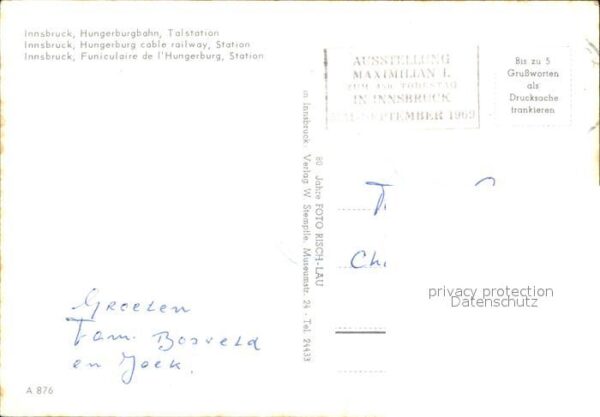 Innsbruck, Hungerburgbahn, Talstation
Innsbruck, Hungerburg cable railway, Station
Innsbruck, Funiculaire de l'Hungerburg, Station
AUSSTELLUNG
MAXIMILIAN I.
ZUM 450. TODESTAG
IN INNSBRUCK
MAI-SEPTEMBER 1969
Bis zu 5
Grußworten
als
Drucksache
frankieren
80 Jahre FOTO RISCH-LAU
in Innsbruck. Verlag W. Stempfle, Museumstr. 24 - Tel. 24433
privacy protection
Datenschutz
Groeten
Fam. Bosveld
en Joek.
A 876